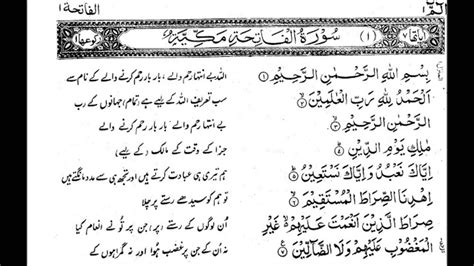 الفاتحة ١
سُوْرَةُ الْفَاتِحَةِ مَكِّيَّةٌ (١)
بِسْمِ اللهِ الرَّحْمٰنِ الرَّحِيْمِ ۝١
اللہ بے انتہا رحم والے، بار بار رحم کرنے والے کے نام سے
اَلْحَمْدُ لِلّٰهِ رَبِّ الْعٰلَمِيْنَ ۝٢
سب تعریف اللہ کے لیے ہے (تمام) جہانوں کے رب
الرَّحْمٰنِ الرَّحِيْمِ ۝٣
بے انتہا رحم والے، بار بار رحم کرنے والے
مٰلِكِ يَوْمِ الدِّيْنِ ۝٤
جزا کے وقت کے مالک (کے لیے)
اِيَّاكَ نَعْبُدُ وَاِيَّاكَ نَسْتَعِيْنُ ۝٥
ہم تیری ہی عبادت کرتے ہیں اور تجھ ہی سے مدد مانگتے ہیں
اِهْدِنَا الصِّرَاطَ الْمُسْتَقِيْمَ ۝٦
تو ہم کو سیدھے رستے پر چلا
صِرَاطَ الَّذِيْنَ اَنْعَمْتَ عَلَيْهِمْ غَيْرِ
اُن لوگوں کے رستے (پر) جن پر تُو نے انعام کیا
الْمَغْضُوْبِ عَلَيْهِمْ وَلَا الضَّآلِّيْنَ ۝٧
نہ اُن کے جن پر غضب ہوا اور نہ گمراہوں کے